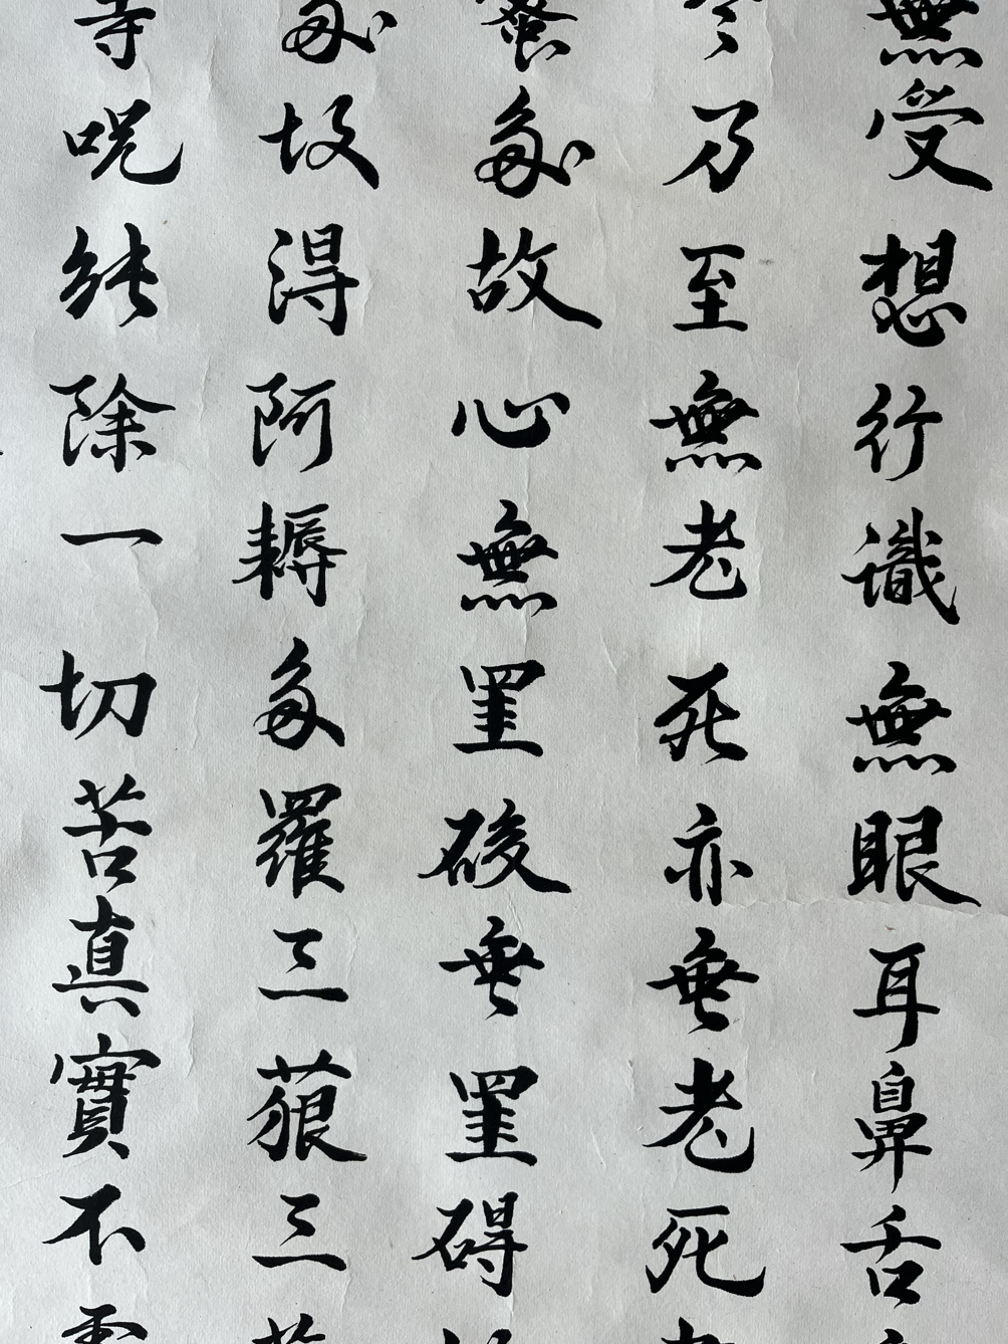 無受想行識無眼耳鼻舌
乃至無老死亦無老死
多故心無罣礙無罣碍
多故得阿耨多羅三藐三
等呪能除一切苦真實不